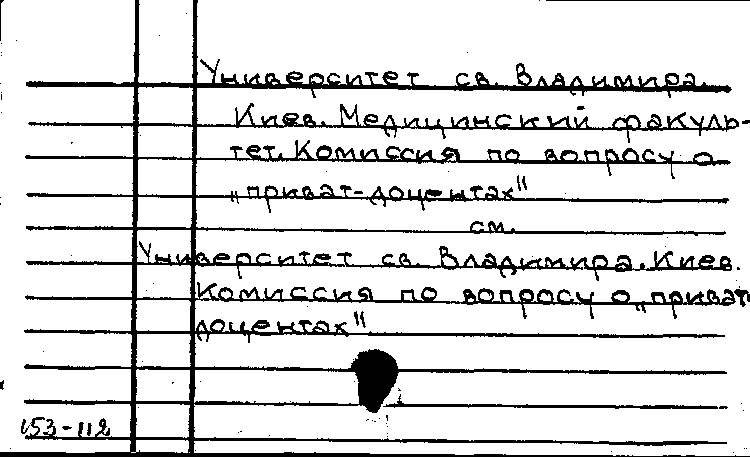 Университет св. Владимира.
Киев. Медицинский факуль-
тет. Комиссия по вопросу о
„приват-доцентах"
см.
Университет св. Владимира. Киев.
Комиссия по вопросу о „приват
доцентах"
153-112